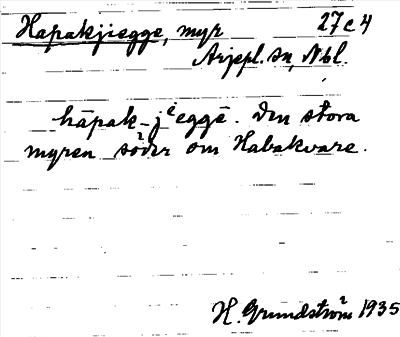 Hapakjiegge, myr 27c4
Arjepl. sn, Nbl.
hāpak-jᵉeggē. Den stora
myren söder om Habakvare.
H. Grundström 1935